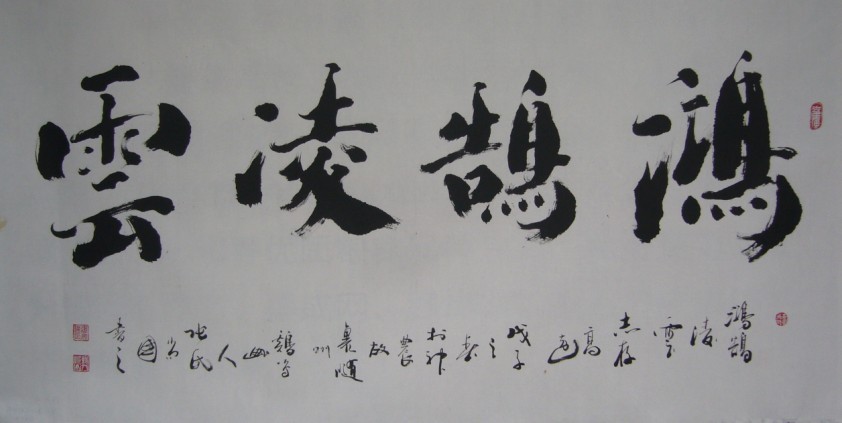 鴻鵠凌雲
鴻鵠
凌
雲
志存
高
遠
戊子
之
春
於神
農
故
里隨
州
鶴鳴
山
人
張氏
國
書之